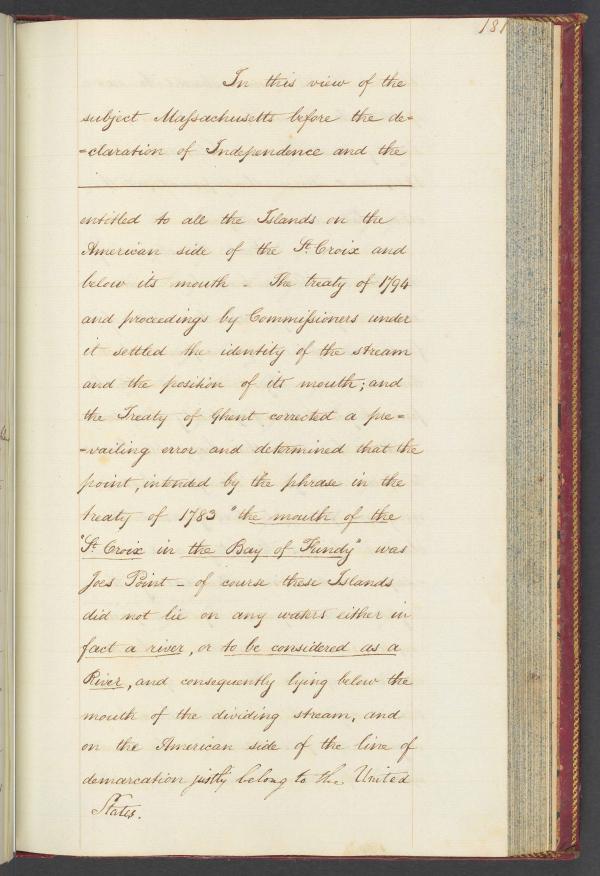 181
In this view of the
subject Maſsachusetts before the de=
=claration of Independence and the
entitled to all the Islands on the
American side of the St. Croix and
below its mouth - The treaty of 1794
and proceedings by Commiſsioners under
it settled the identity of the stream
and the position of its mouth; and
the Treaty of Ghent corrected a pre=
=vailing error and determined that the
point, intended by the phrase in the
treaty of 1783 "the mouth of the
"St. Croix in the Bay of Fundy" was
Joes Point - of course these Islands
did not lie on any waters either in
fact a river, or to be considered as a
River, and consequently lying below the
mouth of the dividing stream, and
on the American side of the line of
demarcation justly belong to the United
States.